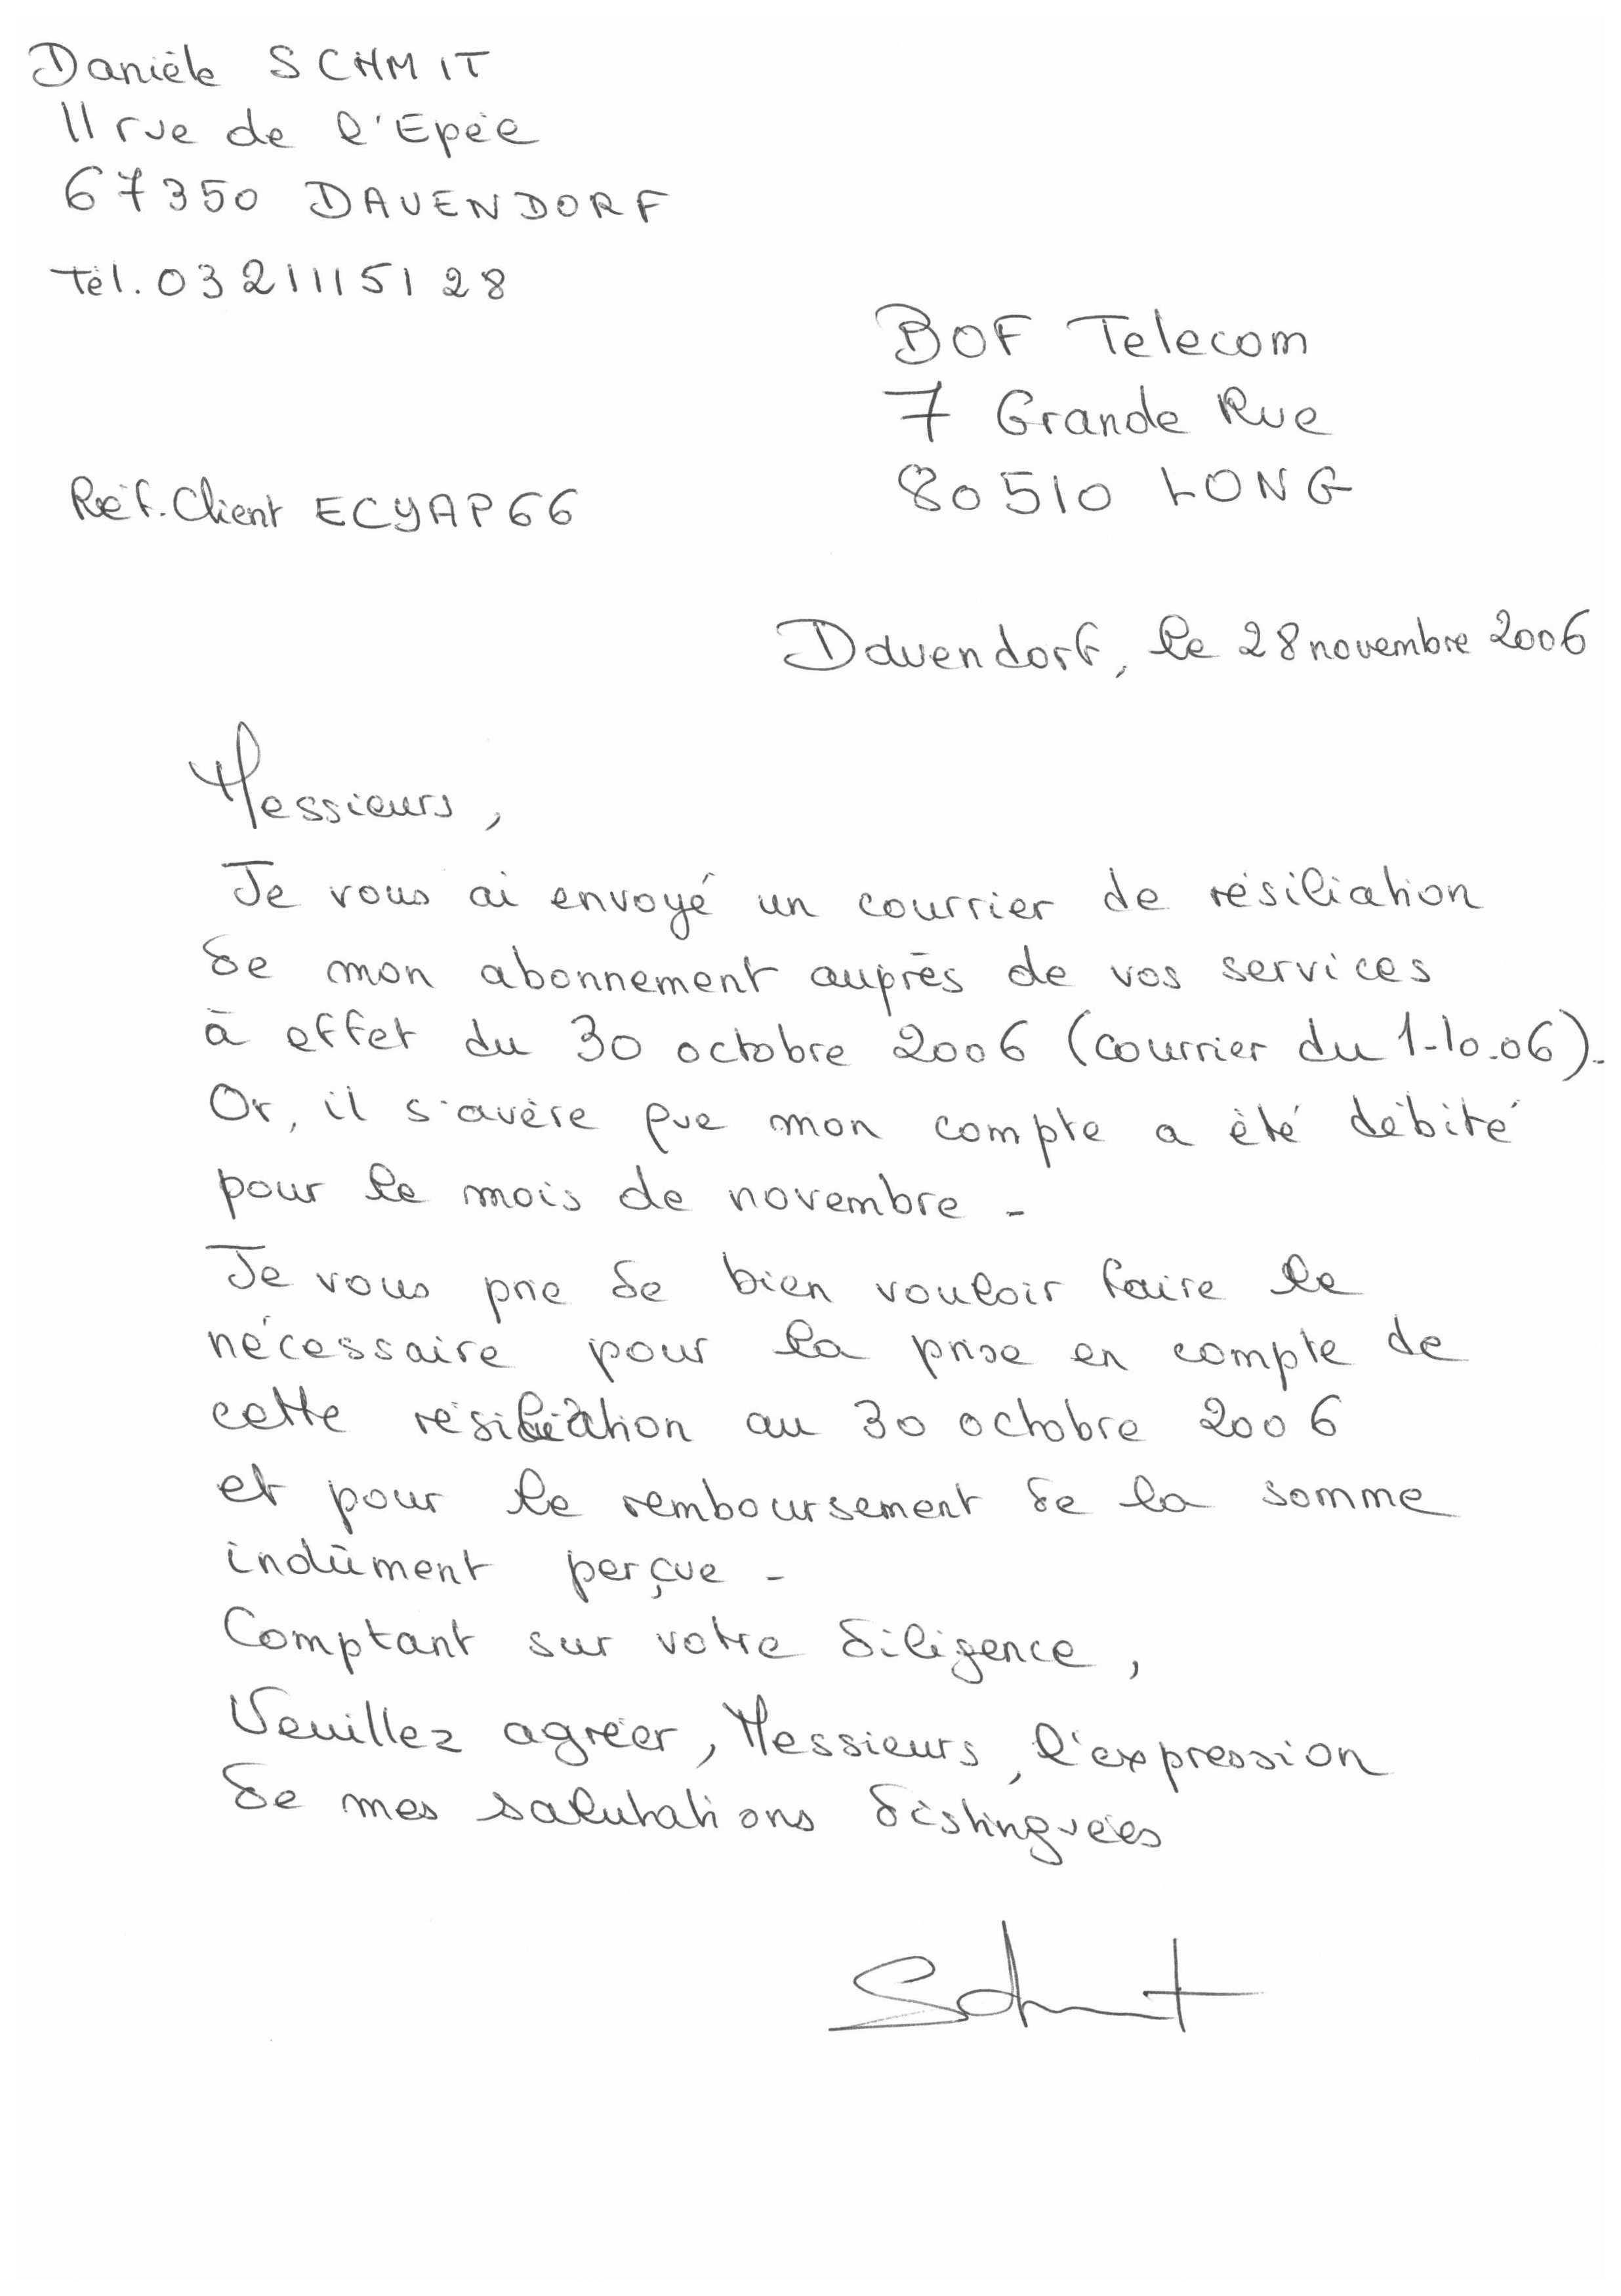 Danièle SCHMIT
11 rue de l'Epée
67350 DAUENDORF
Tél. 03 21 11 51 28
BOF Telecom
7 Grande Rue
80510 LONG
Réf. Client ECYAP66
Dauendorf, le 28 novembre 2006
Messieurs,
Je vous ai envoyé un courrier de résiliation
de mon abonnement auprès de vos services
à effet du 30 octobre 2006 (courrier du 1-10.06).
Or, il s'avère que mon compte a été débité
pour le mois de novembre -
Je vous prie de bien vouloir faire le
nécessaire pour la prise en compte de
cette résiliation au 30 octobre 2006
et pour le remboursement de la somme
indûment perçue -
Comptant sur votre diligence,
Veuillez agréer, Messieurs, l'expression
de mes salutations distinguées
Schmit